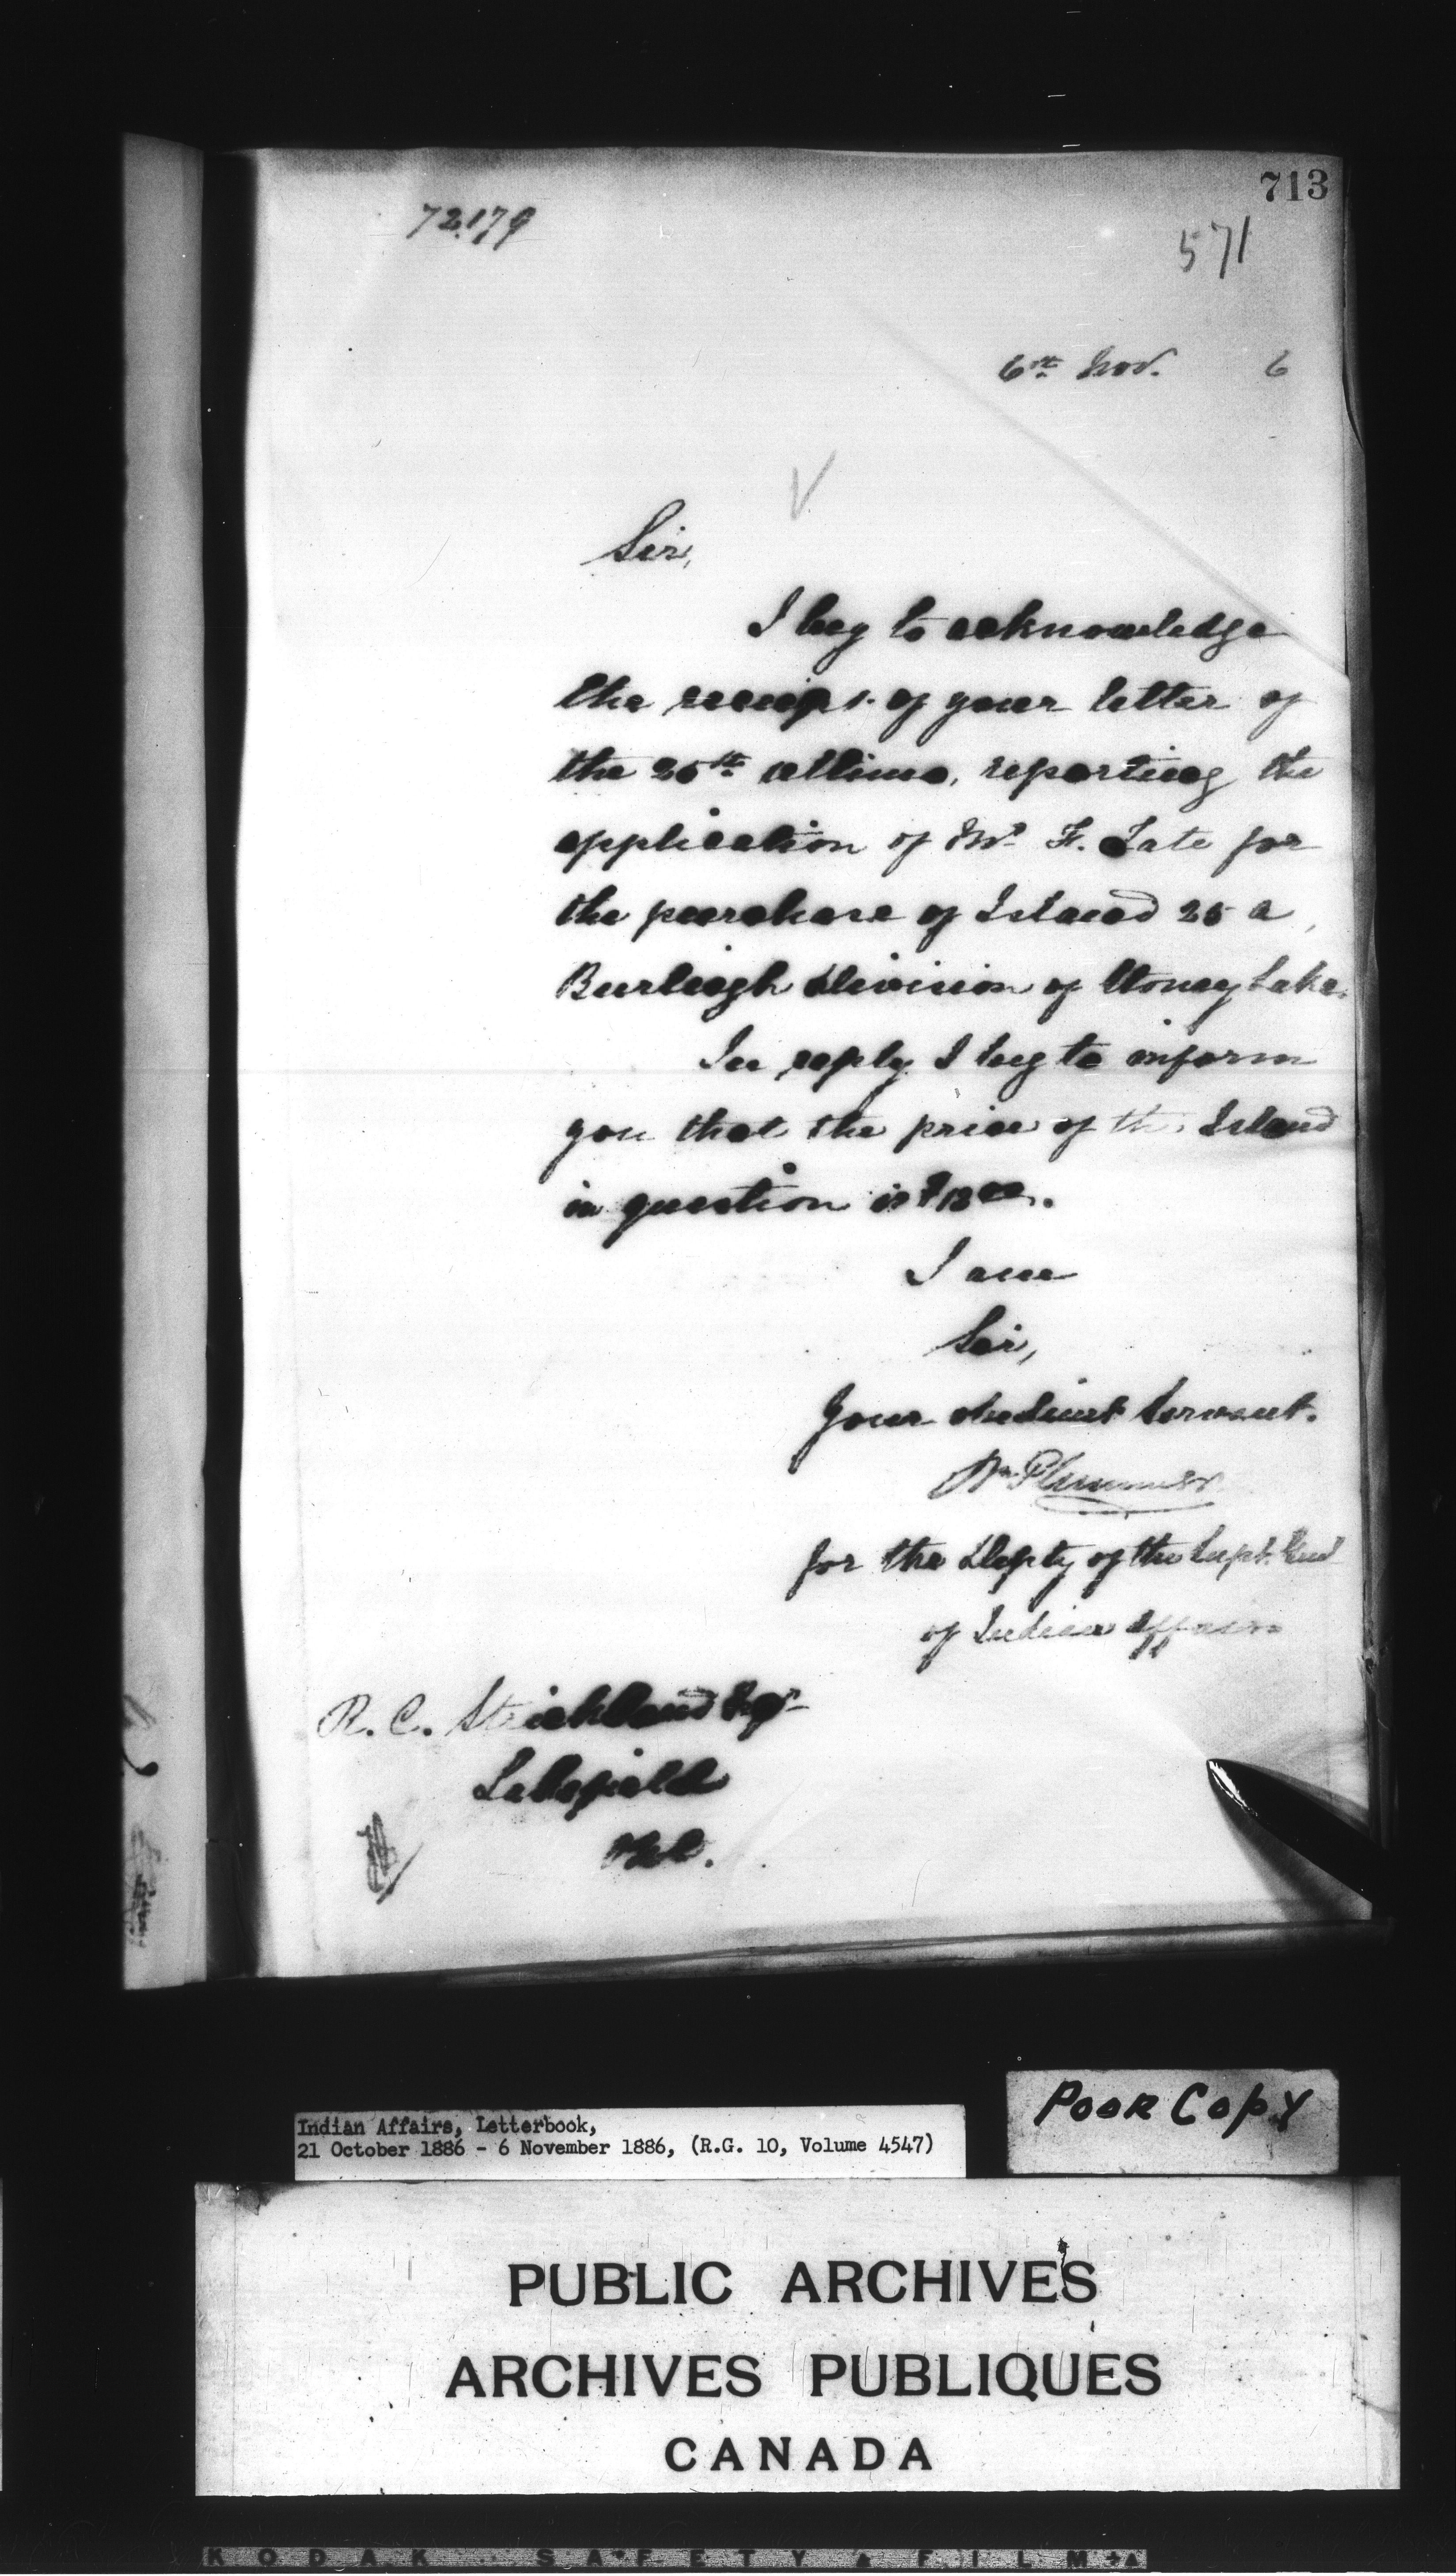 713
72179
571
6th Nov. 6
Sir,
I beg to acknowledge
the receipt of your letter of
the 26th ultimo, reporting the
application of Mr F. Tate for
the purchase of Island 25 a,
Burleigh Division of Stoney Lake.
In reply I beg to inform
you that the price of the Island
in question is
I am
Sir,
Your obedient Servant.
Wm Plummer
for the Depty of the Supt. Genl
of Indian Affairs
R. C. Strickland Esqr
Lakefield
Ont.
Indian Affairs, Letterbook,
21 October 1886 - 6 November 1886, (R.G. 10, Volume 4547)
POOR COPY
PUBLIC ARCHIVES
ARCHIVES PUBLIQUES
CANADA
KODAK SAFETY FILM